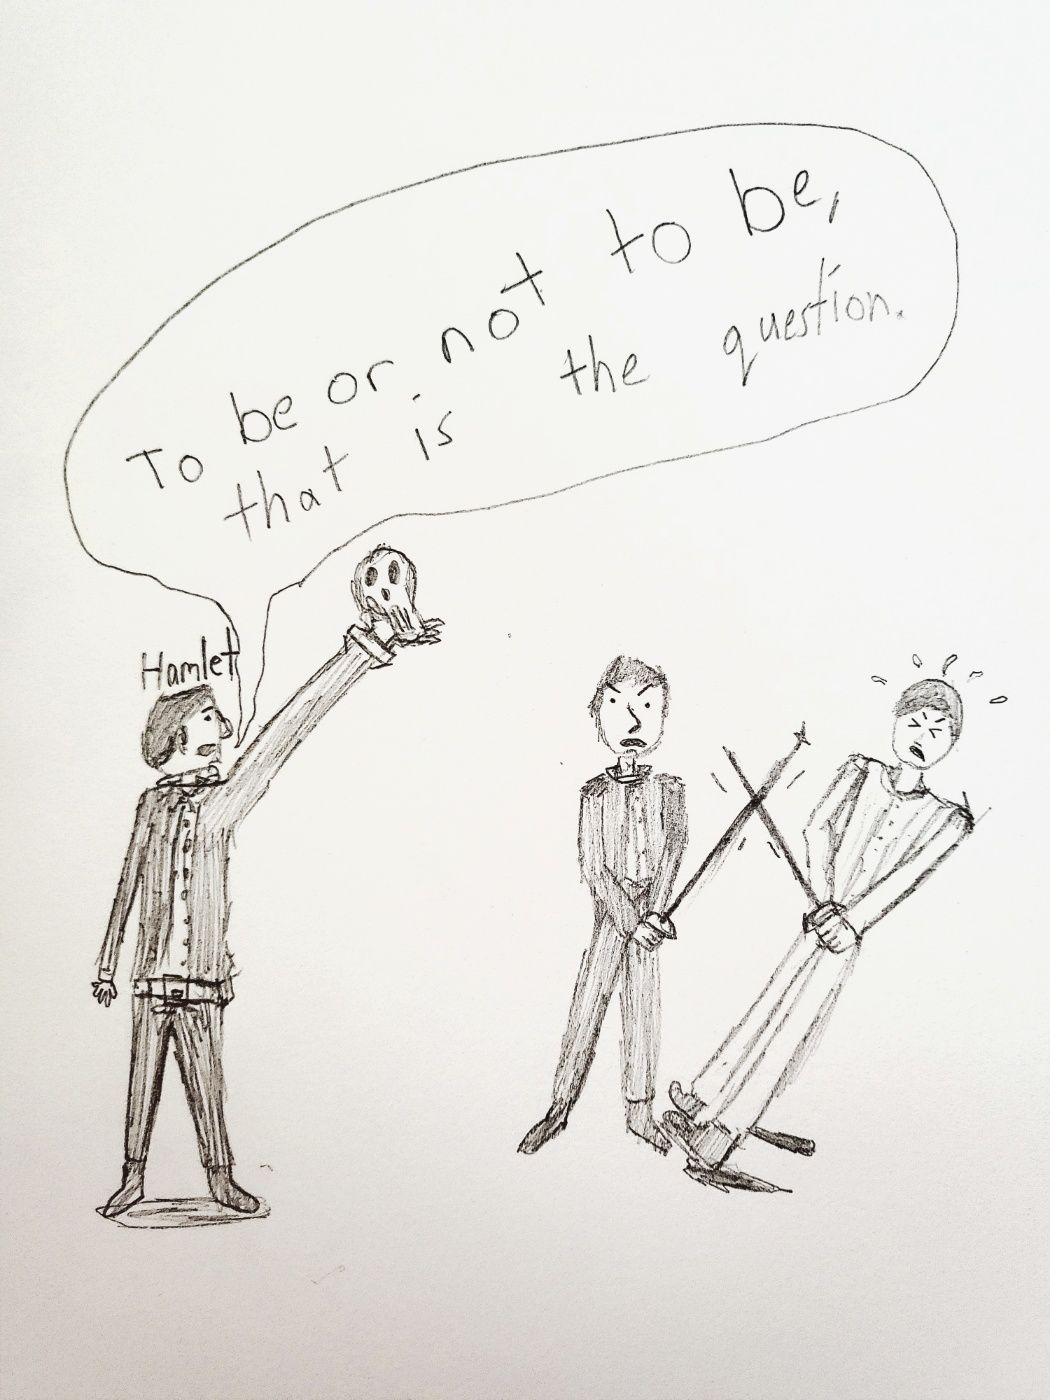 To be or not to be,
that is the question.
Hamlet